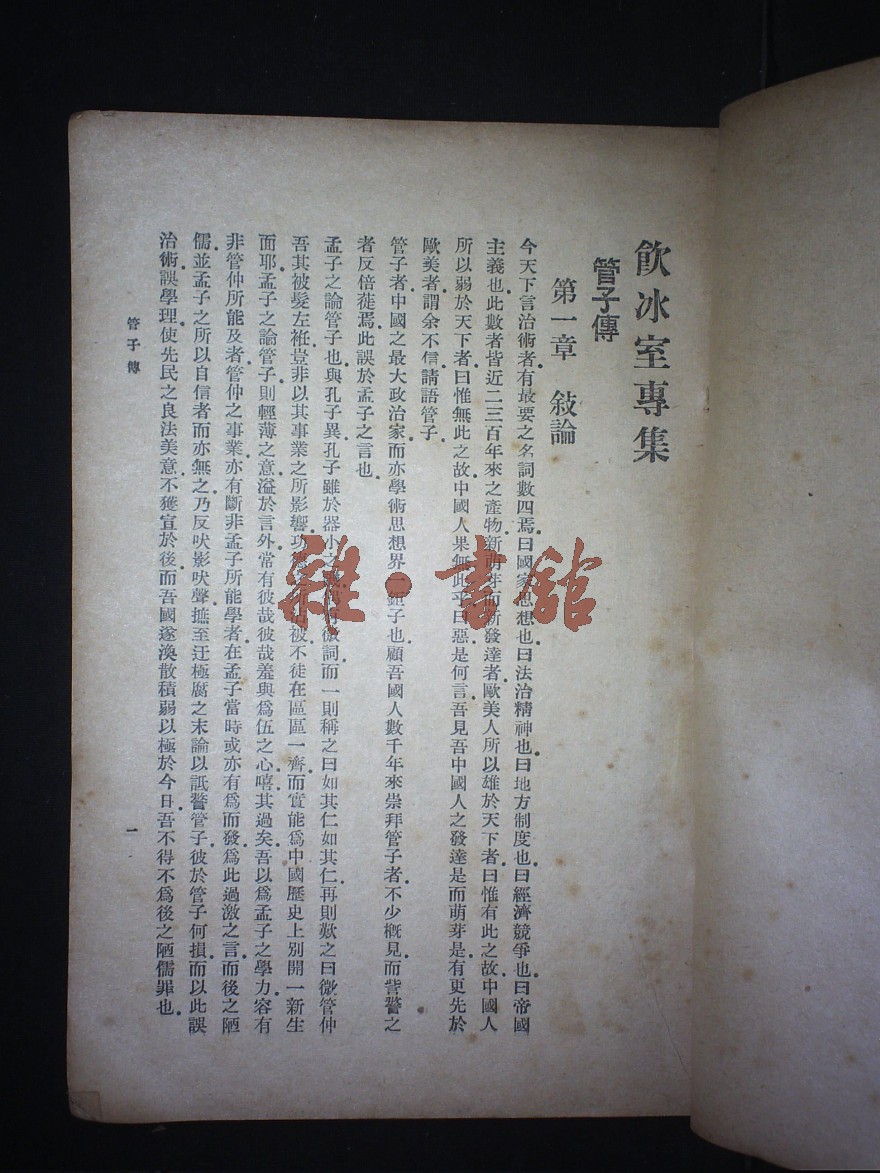 飲冰室專集
管子傳
第一章 敍論
今天下言治術者有最要之名詞數四焉曰國家思想也曰法治精神也曰地方制度也曰經濟競爭也曰帝國
主義也此數者皆近二三百年來之產物新萌芽而新發達者歐美人所以雄於天下者曰惟有此之故中國人
所以弱於天下者曰惟無此之故中國人果無此乎曰惡是何言吾見吾中國人之發達是而萌芽是有更先於
歐美者謂余不信請語管子
管子者中國之最大政治家而亦學術思想界一鉅子也顧吾國人數千年來崇拜管子者不少概見而訾謷之
者反倍蓰焉此誤於孟子之言也
孟子之論管子也與孔子異孔子雖於器小之譏微詞而一則稱之曰如其仁如其仁再則歎之曰微管仲
吾其被髮左袵豈非以其事業之所影響功被不徒在區區一齊而實能爲中國歷史上別開一新生
面耶孟子之論管子則輕薄之意溢於言外常有彼哉彼哉羞與爲伍之心嘻其過矣吾以爲孟子之學力容有
非管仲所能及者管仲之事業亦有斷非孟子所能學者在孟子當時或亦有爲而發爲此過激之言而後之陋
儒並孟子之所以自信者而亦無之乃反吠影吠聲摭至迂極腐之末論以詆謷管子彼於管子何損而以此誤
治術誤學理使先民之良法美意不獲宣於後而吾國遂渙散積弱以極於今日吾不得不爲後之陋儒罪也
管子傳
一
雜·書館